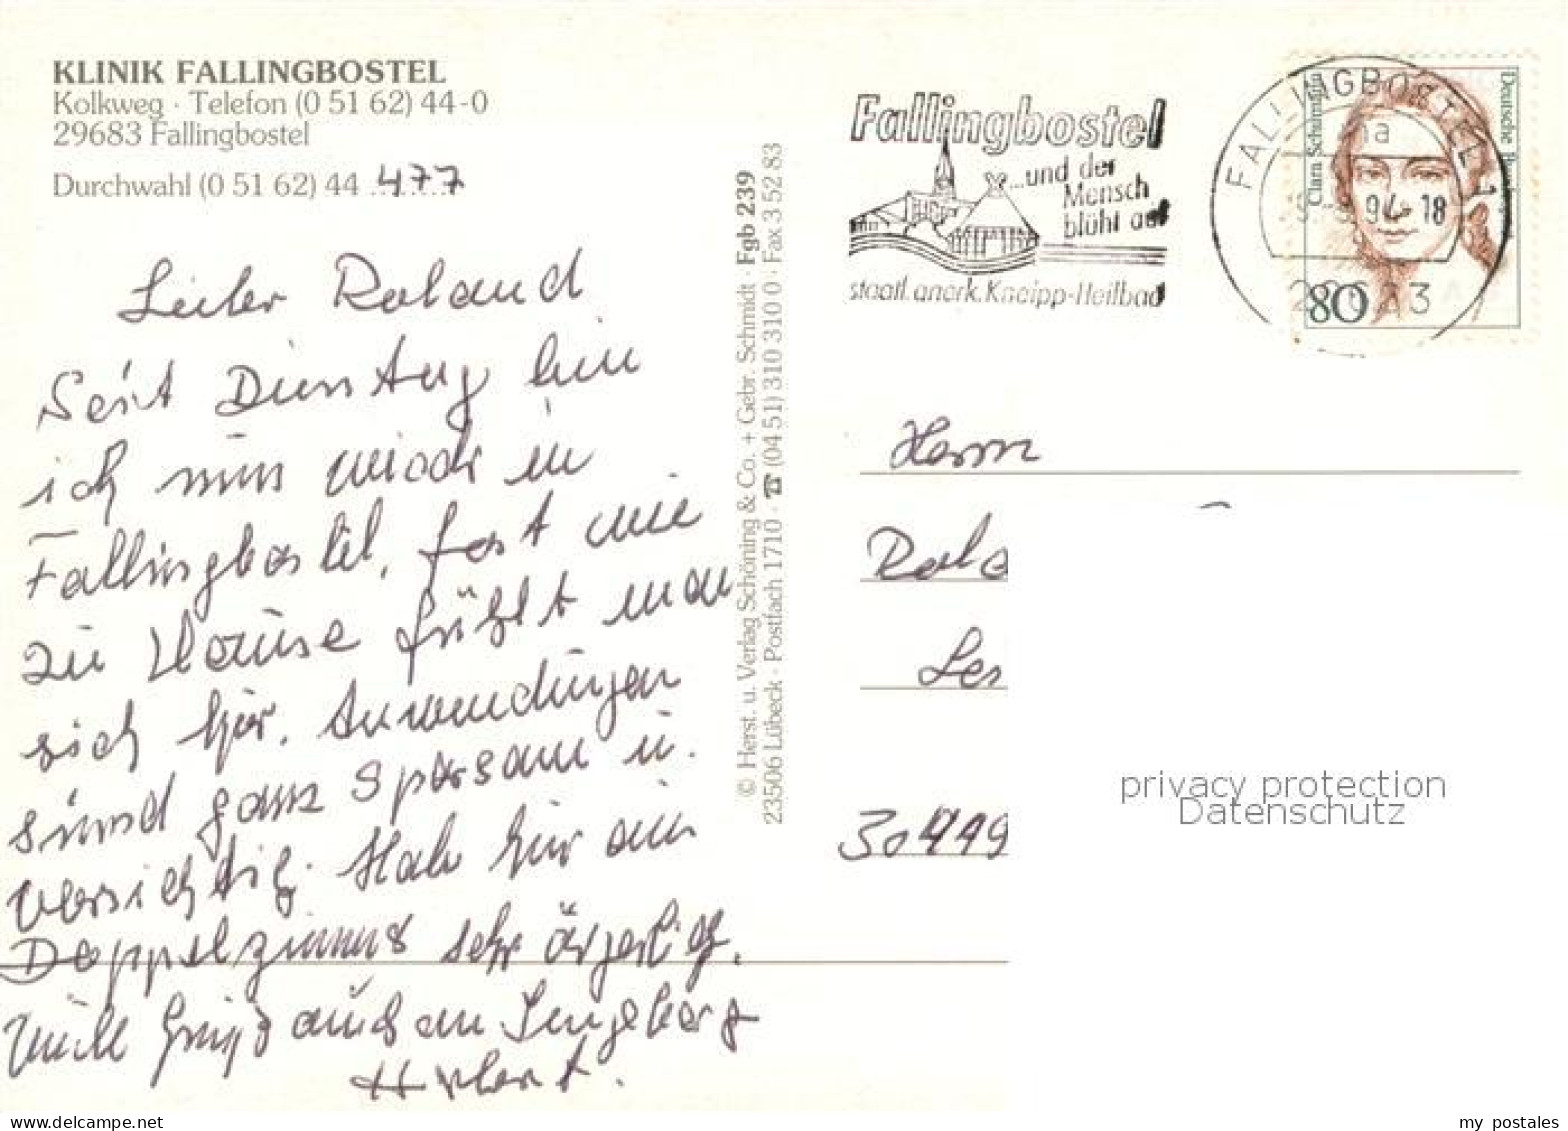 KLINIK FALLINGBOSTEL
Kolkweg · Telefon (0 51 62) 44-0
29683 Fallingbostel
Durchwahl (0 51 62) 44 477
Lieber Roland
Seit Dienstag bin
ich nun wieder in
Fallingbostel, fast wie
zu Hause fühlt man
sich hier. Anwendungen
sind ganz sparsam u.
vorsichtig. Hab hier ein
Doppelzimmer sehr ärgerlich.
Viele Grüße auch an Ingeborg
Herbert.
© Herst. u. Verlag Schöning & Co. + Gebr. Schmidt · Fgb 239
23506 Lübeck · Postfach 1710 · ☎ (04 51) 310 310 0 · Fax 3 52 83
Fallingbostel
...und der
Mensch
blüht auf
staatl. anerk. Kneipp-Heilbad
FALLINGBOSTEL 1
94-18
Clara Schumann
Deutsche Bundespost
80
Herrn
Rola
Les
30449
privacy protection
Datenschutz
my postales
www.delcampe.net